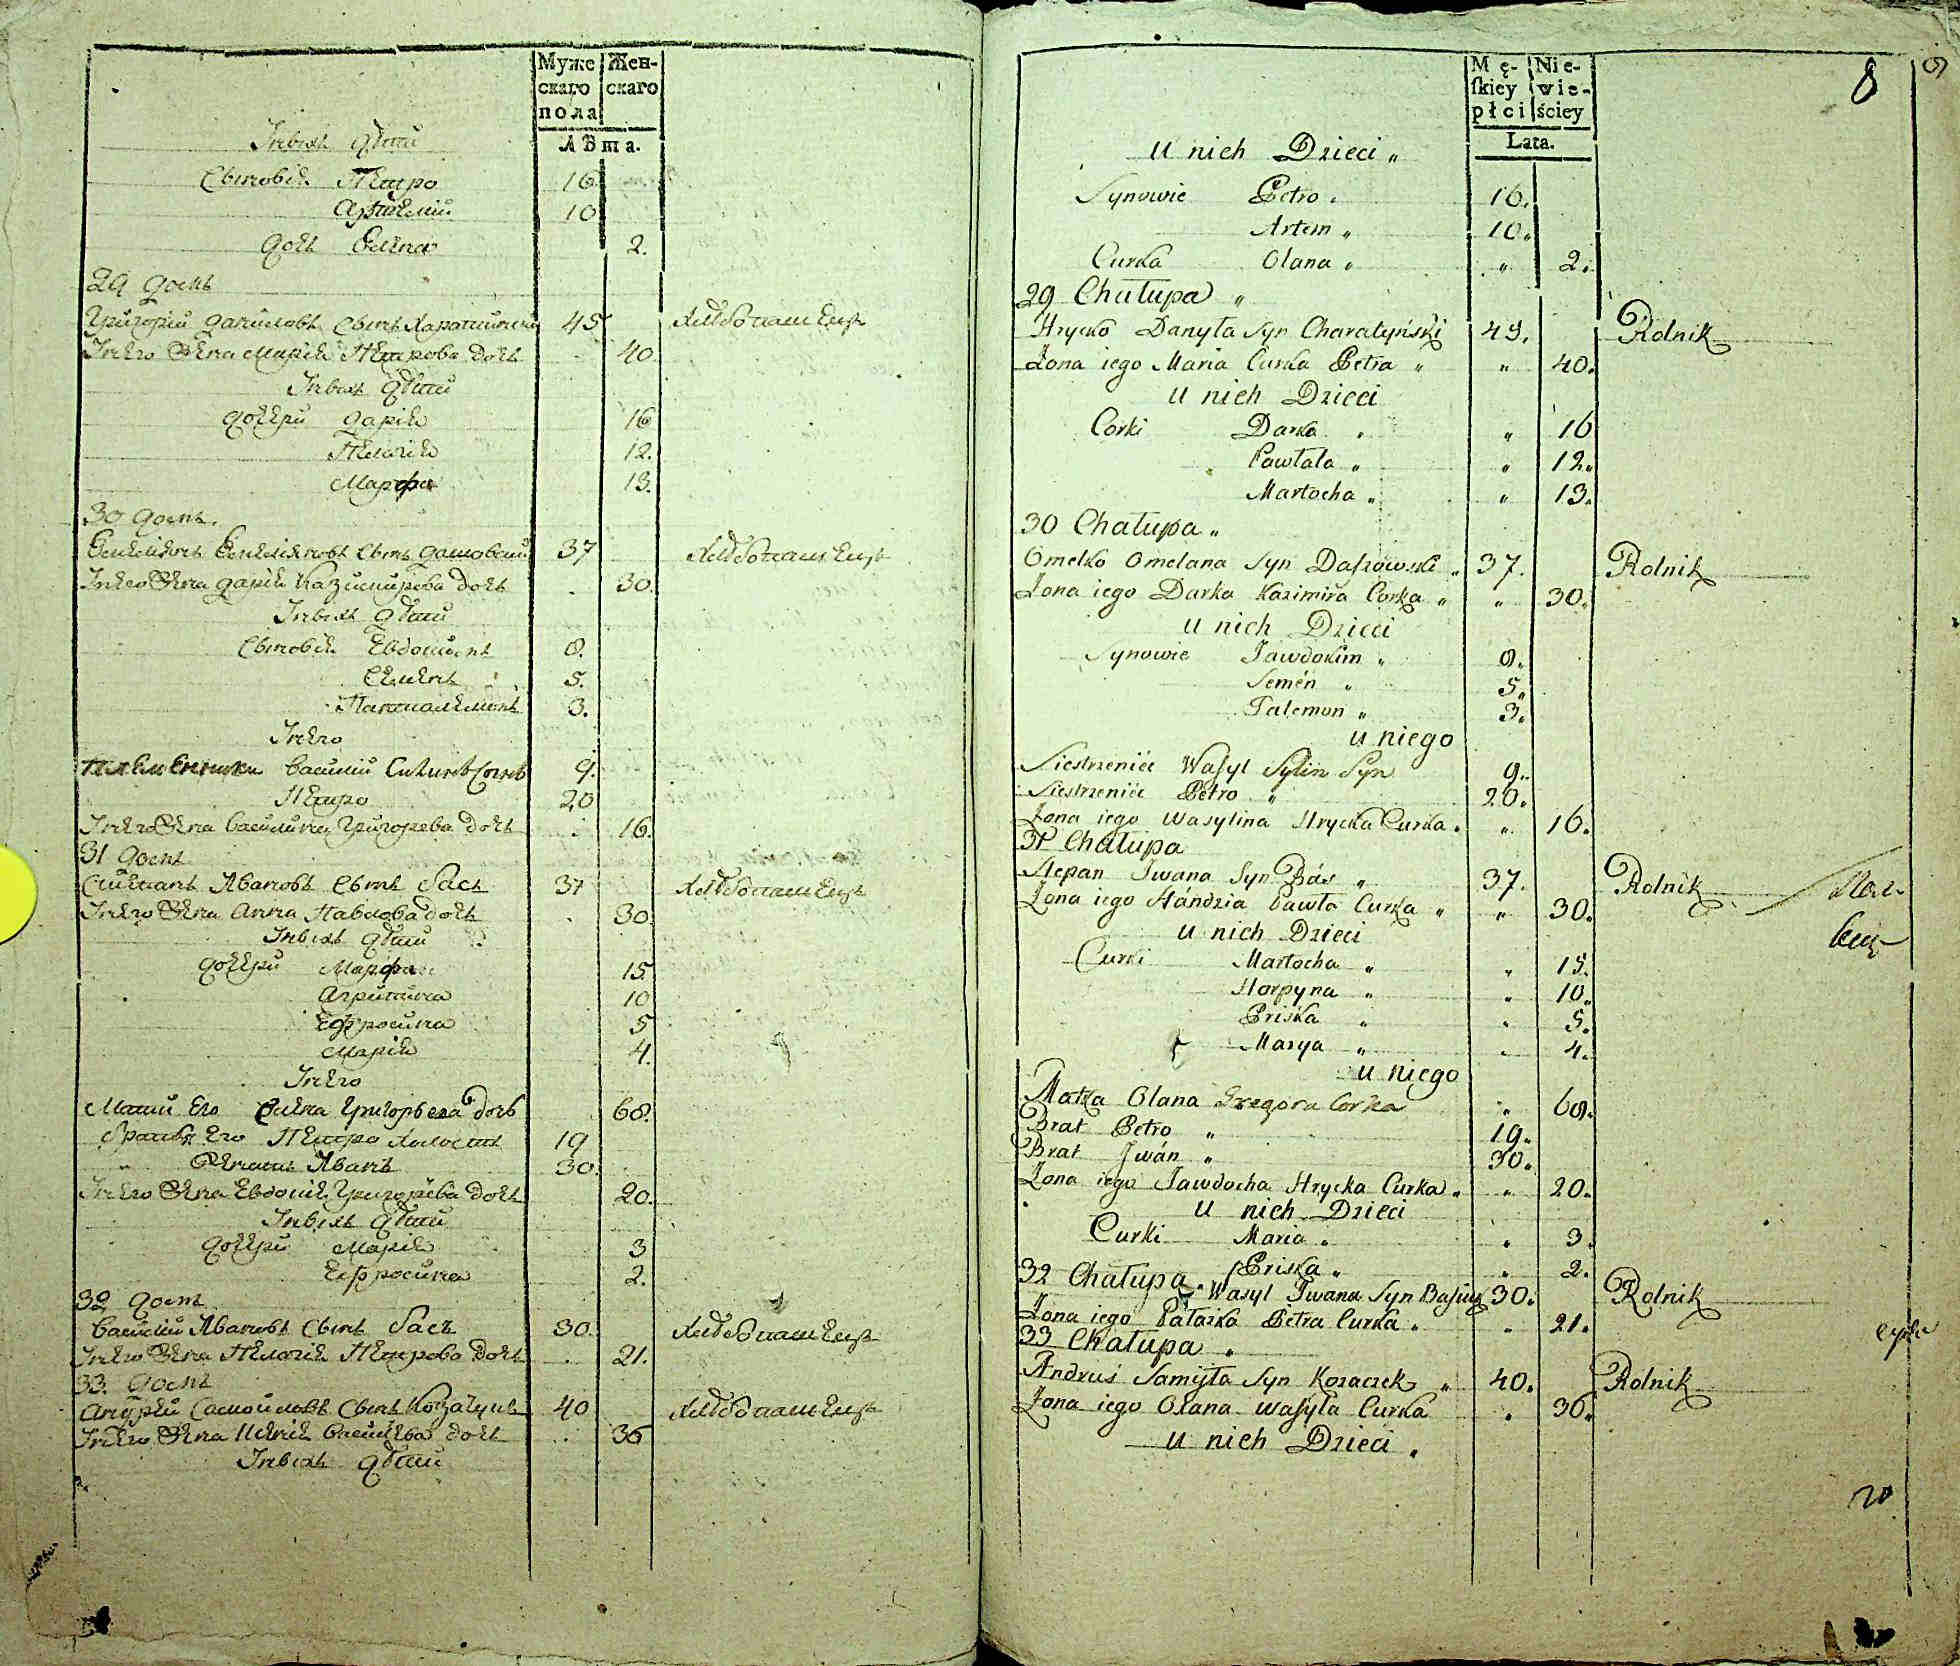 Муже
скаго
пола
Жен-
скаго
Лѣта.
У нихъ дѣти
Сыновья Петро 16
Артемій 10
дочь Елена 2.
29 домъ
Григорій Даниловъ сынъ Харатинский 45 хлѣбопашецъ
У него жена Марія Петрова дочь 40.
У нихъ дѣти
дочери Дарія 16
Пелагія 12.
Марфа 13.
30 домъ.
Емеліянъ Емеліяновъ сынъ Дашовский 37 хлѣбопашецъ
У него жена Дарія Казимирова дочь 30.
У нихъ дѣти
Сыновья Евдокимъ 8.
Семенъ 5.
Панталемонъ 3.
У него
племенники Василий Силинъ сынъ 9.
Петро 20
У него жена Василина Григорева дочь 16.
31 домъ
Степанъ Ивановъ сынъ Басъ 37 хлѣбопашецъ
У него жена Анна Павлова дочь 30.
У нихъ дѣти
дочери Марфа 15
Агрипина 10
Ефросина 5
Марія 4.
У него
Мати его Елена Григорьева дочь 68.
Братья его Петро холостъ 19
Женатъ Иванъ 30.
У него жена Евдокія Григорева дочь 20.
У нихъ дѣти
дочери Марія 3
Ефросина 2.
32 домъ
Василий Ивановъ сынъ Басъ 30. хлѣбопашецъ
У него жена Пелагія Петрова дочь 21.
33. домъ
Андрей Самойловъ сынъ 40 хлѣбопашецъ
У него жена дочь 36
У нихъ дѣти
8
Mę-
ſkiey
płci
Nie-
wie-
ściey
Lata.
U nich Dzieci „
Synowie Petro „ 16.
Artem „ 10.
Curka Olana „ „ 2.
29 Chałupa „
Hrycko Danyła Syn Charatyński 45. Rolnik
Żona iego Maria Curka Petra „ „ 40.
U nich Dzieci
Corki Darka „ „ 16
Pawłała „ „ 12.
Martocha „ „ 13.
30 Chałupa „
Omelko Omelana Syn Daſzowski „ 37. Rolnik
Żona iego Darka Kazimira Corka „ „ 30.
U nich Dzieci
Synowie Jawdokim „ 8.
Semén „ 5.
Palemon „ 3.
U niego
Siestrzenicc Waſyl Sylin Syn 9.
Siestrzenicc Petro „ 20.
Żona iego Wasylina Hrycka Curka. „ 16.
31 Chałupa
Stepan Jwana Syn Bás „ 37. Rolnik
Żona iego Hándzia Pawła Curka „ „ 30.
U nich Dzieci
Curki Martocha „ „ 15.
Horpyna „ „ 10.
Priska „ „ 5.
Marya „ „ 4.
U niego
Matka Olana Gregora Corka „ 68.
Brat Petro „ 19.
Brat Jwán „ 30.
Żona iego Jawdocha Hrycka Curka „ „ 20.
U nich Dzieci
Curki Maria „ „ 3.
Priska „ „ 2.
32 Chałupa. Wasyl Jwana Syn 30. Rolnik
Żona iego Pałazka Petra Curka „ „ 21.
33 Chałupa „
Andruś Samiyła Syn Kozaczek „ 40. Rolnik
Żona iego Olana Waſyla Curka „ 36.
U nich Dzieci „